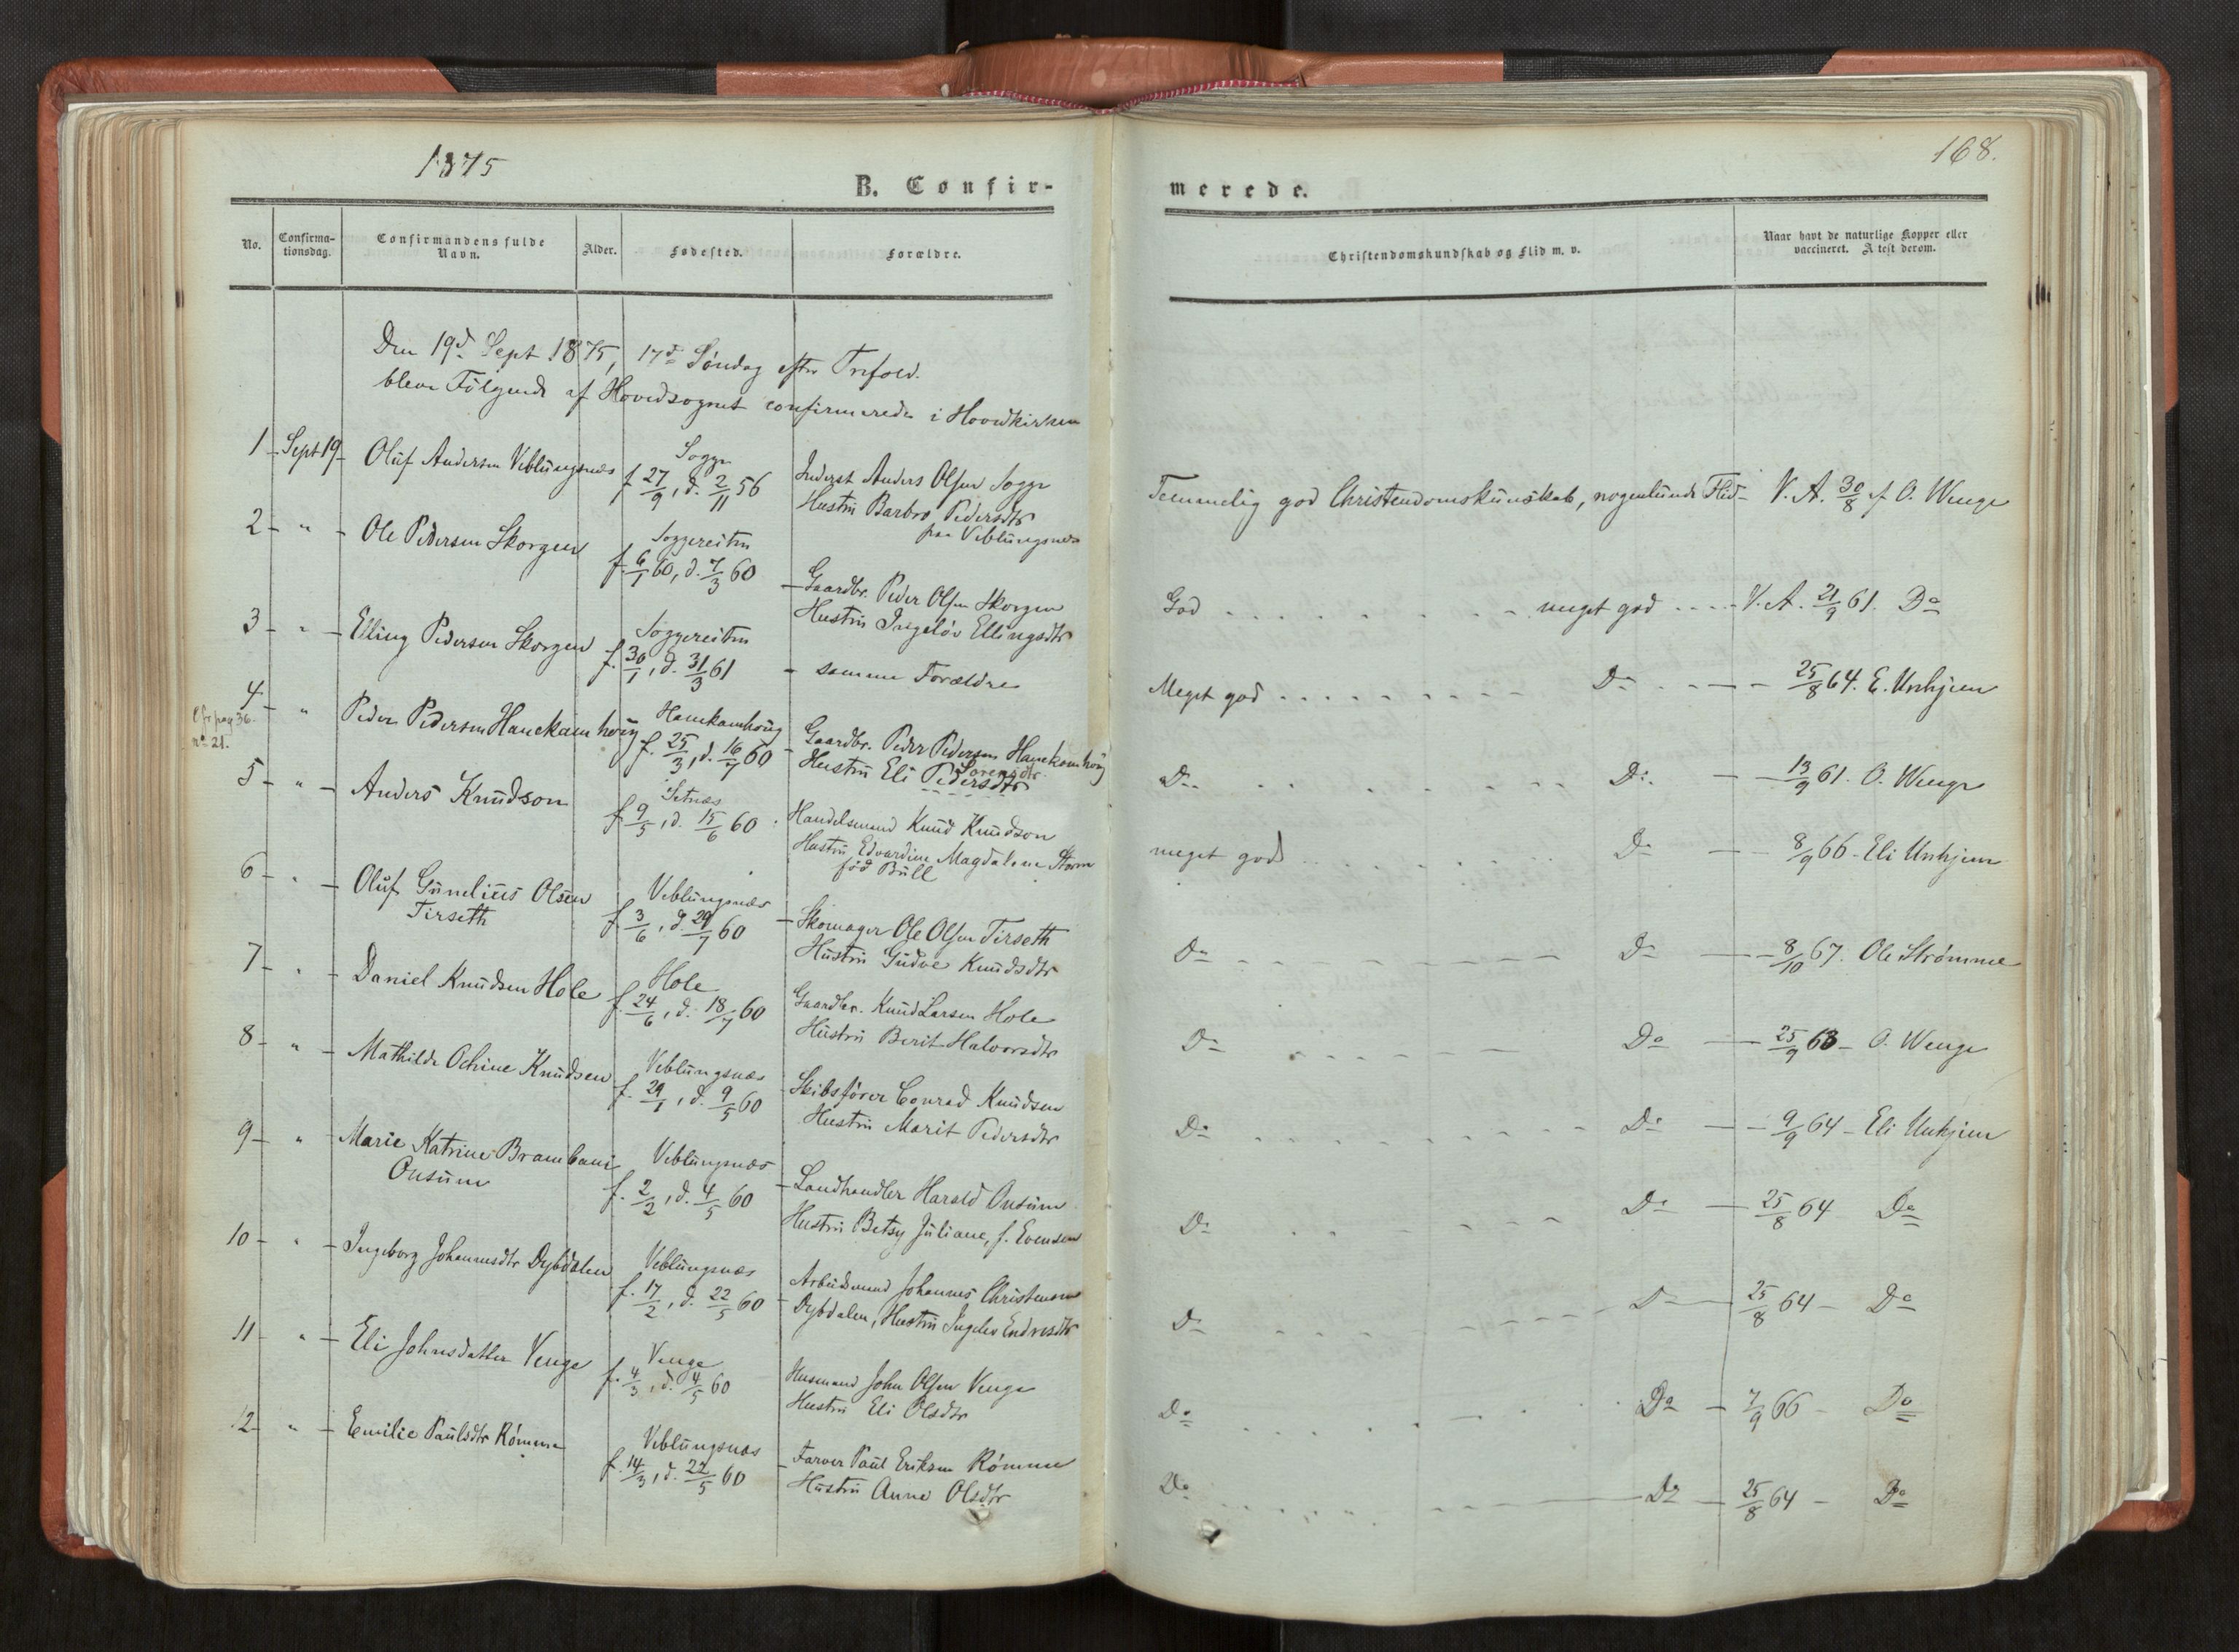 1875
168.
B. Confir-
merede.
No.
Confirma-
tionsdag.
Confirmandens fulde
Navn.
Alder.
Fødested.
Forældre.
Christendomskundskab og Flid m. v.
Naar havt de naturlige Kopper eller
vaccineret. Attest derom.
Den 19d Sept 1875, 17d Søndag efter Trefold.
bleve Følgende af Hovedsognet confirmerede i Hovedkirken
1 - Sept 19 - Oluf Andersen Veblungsnæs Sogge Inderst Anders Olsen Sogge
f 27/9, d. 2/11 56 Hustru Barbro Pedersdtr
fra Veblungsnæs
Temmelig god Christendomskundskab, nogenlunde Flid - V. A. 30/8 af O. Wenge
2 - " - Ole Pedersen Skorgen Soggereiten
f. 6/1 60, d. 7/3 60 - Gaardbr. Peder Olsen Skorgen
Hustru Ingeløv Ellingsdtr
God meget god V. A. 21/9 61. Do
3 - " - Elling Pedersen Skorgen Soggereiten
f. 30/1, d. 31/3 61 - samme Forældre
Meget god Do - 25/8 64. E. Unhjem
4 " Peder Pedersen Hanekamhoug Hanekamhoug
Cfr pag 36.
no 21.
f. 25/3, d. 16/7 60 - Gaardbr. Peder Pedersen Hanekamhoug
Sørensdtr.
Hustru Eli Pedersdtr
Do Do - 13/9 61. O. Wenge
5 - " - Anders Knudson Setnæs
f. 9/5, d. 15/6 60 Handelsmand Knud Knudson
Hustru Edvardine Magdalene Storm
fød Bull
meget god Do - 8/9 66 - Eli Unhjem
6 - " - Oluf Gunelius Olsen Veblungsnæs
Tirseth f. 3/6, d. 29/7 60 - Skomager Ole Olsen Tirseth
Hustru Gudve Knudsdtr
Do Do - 8/10 67. Ole Strømme
7 - " - Daniel Knudsen Hole Hole
f. 24/6, d. 18/7 60 Gaardbr. Knud Larsen Hole
Hustru Berit Halvorsdtr
Do Do - 25/9 63 - O. Wenge
8 - " - Mathilde Ochine Knudsen Veblungsnæs
f. 29/1, d. 9/5 60 - Skibsfører Conrad Knudsen
Hustru Marit Pedersdtr
Do Do - 9/9 64 - Eli Unhjem
9 - " - Marie Katrine Brambani Veblungsnæs
Onsum f. 2/2, d. 4/5 60 - Landhandler Harald Onsum
Hustru Betsy Juliane, f. Evensen
Do Do - 25/8 64 Do
10 - " - Ingeborg Johannesdtr Dybdalen Veblungsnæs
f. 17/2, d. 22/5 60 - Arbeidsmand Johannes Christensen
Dybdalen, Hustru Ingelev Endresdtr
Do Do 25/8 64 - Do
11 - " - Eli Johnsdatter Venge Venge
f. 4/3, d. 4/5 60 Husmand John Olsen Venge
Hustru Eli Olsdtr
Do Do - 7/9 66 - Do
12 - " - Emilie Paulsdtr Rømme Veblungsnæs
f. 14/3, d. 22/5 60 - Farver Paul Eriksen Rømme
Hustru Anne Olsdtr
Do Do - 25/8 64 - Do